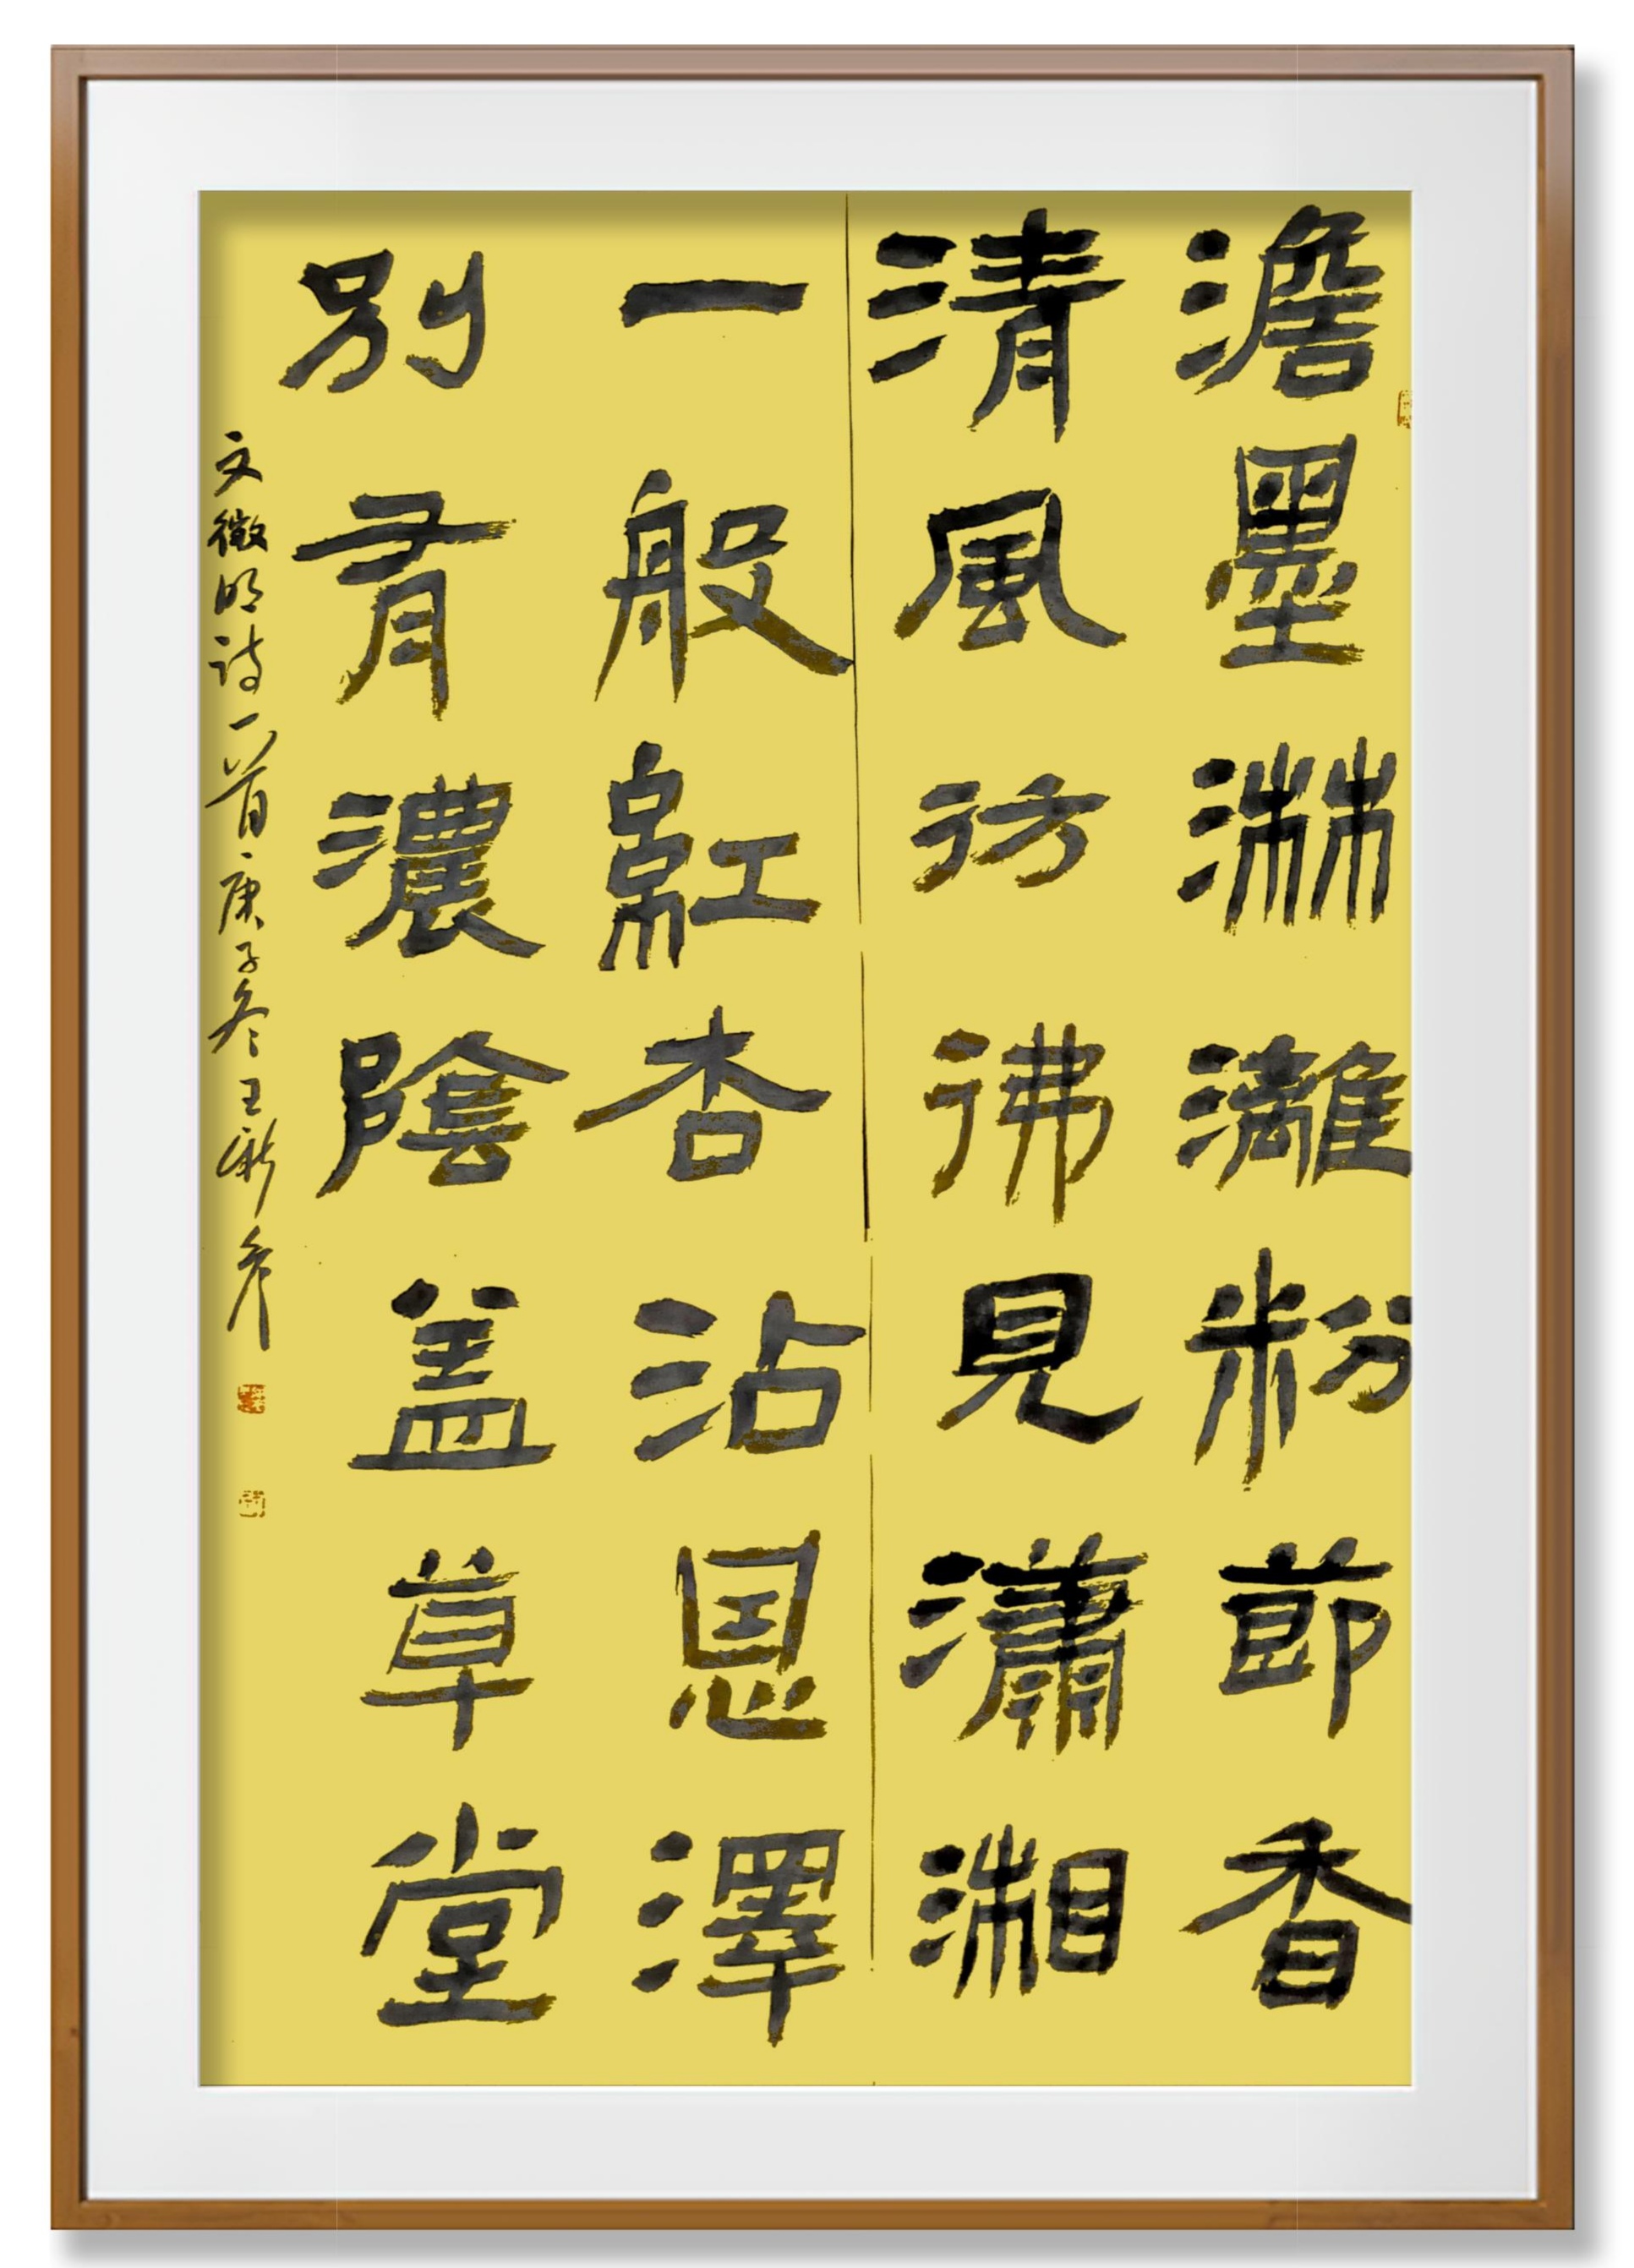 澹墨淋灕粉節香
清風彷彿見瀟湘
一般紅杏沾恩澤
別有濃陰蓋草堂
文徵明詩一首庚子冬王新